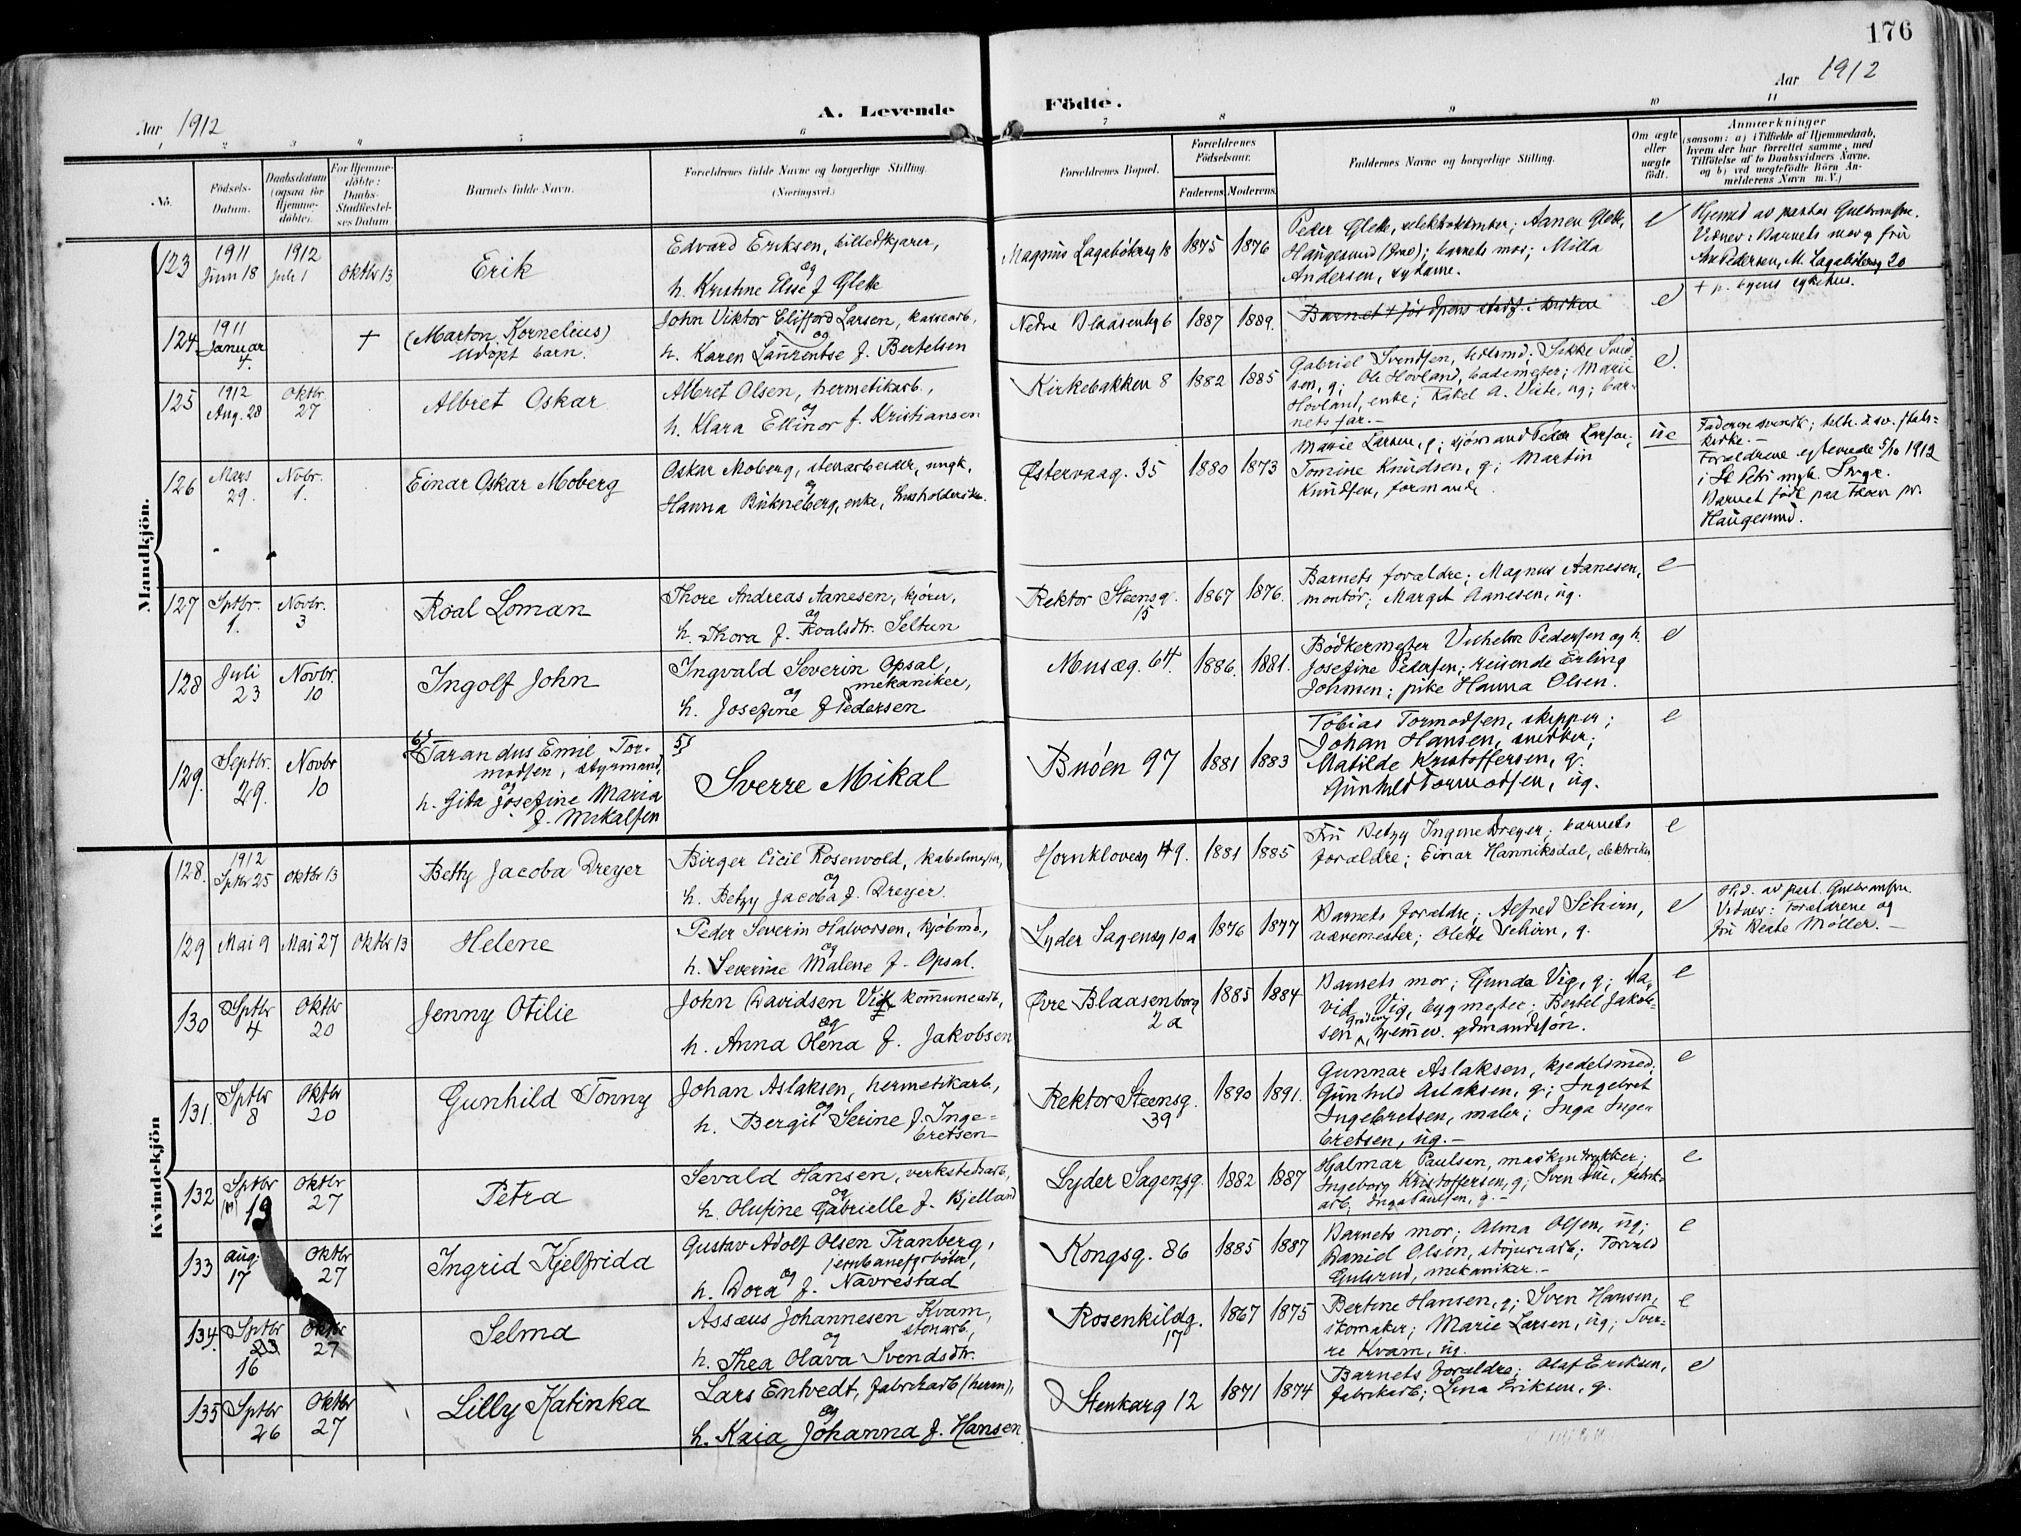 176
Aar 1912
A. Levende Födte.
Aar 1912
1 2 3 4 5 6 7 8 9 10 11
No.
Födsels-Datum.
Daabsdatum (ogsaa for Hjemmedöbte).
For Hjemmedöbte: Daabs-Stadfestelses Datum.
Barnets fulde Navn.
Forældrenes fulde Navne og borgerlige Stilling. (Næringsvei.)
Forældrenes Bopæl.
Forældrenes Födselsaar.
Faderens. Moderens.
Faddernes Navne og borgerlige Stilling.
Om ægte eller uægte födt.
Anmærkninger
(saasom: a) i Tilfælde af Hjemmedaab,
hvem der har forrettet samme, med
Tilföielse af to Daabsvidners Navne.
og b) ved uægtefödte Börn Anmelderens Navn m. V.)
Mandkjön.
123 1911 Juni 18 1912 Juli 1 Oktbr 13 Erik
Edvard Eriksen, billedskjærer,
og
h. Kristine Elise f. Glette
Magnus Lagabøtersg 18 1875 1876
Peder Glette, Aanen Glette,
Haugesund; barnets mor; Milla
Andersen, sydame.
e
Hjemd av pastor Gulbransen.
Vidner: Barnets mor og fru
Pedersen, M. Lagabøtersg 20
124 1911 Januar 4. † (Marton Kornelius)
udøpt barn.
John Viktor Clifford Larsen, kassearb.
og
h. Karen Laurentse f. Bertelsen
Nedre Blaasenbg 6 1887 1889.
Barnet † før dpens stadf. i kirken
e
† p. byens sykehus.
125 1912 Aug. 28 Oktbr 27 Albret Oskar
Albret Olsen, hermetikarb.,
og
h. Klara Ellinor f. Kristiansen
Kirkebakken 8 1882 1885
Gabriel Svendsen, Sikke Svendsen, g; Ole Hovland, bademester; Marie
Hovland, enke; Rakel A. ug; barnets far.-
e.
126 Mars 29. Novbr. 1. Einar Oskar Moberg
Oskar Moberg, stenarbeider, ungk,
og
Hanna Bukneberg, enke, husholderske.
Østervaag. 35 1880 1873
Marie Larsen, g; sjømand Peder Larsen;
Tomine Knudsen, g; Martin
Knudsen, formand.
ue
Faderen svensk; tilh. d. sv. stats-
kirke.-
Forældrene egtevede 5/10 1912
i St Petri mgh. Svgr.
Barnet født paa Fløen pr.
Haugesund.
127 Sptbr. 1. Novbr. 3 Roal Loman
Thore Andreas Aanesen, kjører,
og
h. Thora f. Roalsdtr. Seltun
Rektor Steensg. 15 1867 1876.
Barnets forældre; Magnus Aanesen,
montør; Margit Aanesen, ug.
e
128 Juli 23 Novbr. 10 Ingolf John
Ingvald Severin Opsal,
mekaniker,
og
h. Josefine f Pedersen
Musæg. 64. 1886. 1881.
Bødkermester Vilhelm Pedersen og h.
Josefine Pedersen; reisende Erling
Johnsen; pike Hanna Olsen.
e
129. Septbr. 29. Novbr 10
6) Tarandus Emil Tor-
modsen, styrmand,
og
h. Gita Josefine Maria
f. Mikalsen
5) Sverre Mikal
Buøen 97 1881 1883
Tobias Tormodsen, skipper;
Johan Hansen, snedker;
Matilde Kristoffersen, g.
Gunhild Tormodsen, ug.
e
Kvindekjön
128. 1912 Sptbr 25 Oktbr 13 Betty Jacoba Dreyer
Birger Cicil Rosenvold, kabelmester,
og
h. Betzy Jacoba f. Dreyer.
Hornkloveg 49. 1881 1885
Fru Betzy Ingine Dreyer; barnets
forældre; Einar Hanniksdal, elektriker
e
129 Mai 9 Mai 27 Oktbr 13 Helene
Peder Severin Halvorsen, kjøbmd,
og
h. Severine Malene f. Opsal.
Lyder Sagensg 10a 1876 1877
Barnets forældre; Alfred Schirn,
vævemester; Olette Schirn, g.
e
Hj.d. av past. Gulbransen.
Vidner: Forældrene og
fru Beate Møller.-
130 Sptbr 4 Oktbr 20 Jenny Otilie
John Davidsen Vig kommunearb,
og
h. Anna Olena f. Jakobsen
Øvre Blaasenborg 2a 1885 1884
Barnets mor; Gunda Vig, g; Da-
vid Vig, bygmester; Bertel Jakob-
sen, Gröding hjemmev. gdmandssøn.
e
131. Sptbr 8 Oktbr 20 Gunhild Tonny
Johan Aslaksen, hermetikarb,
og
h. Bergit Serine f. Inge-
bretsen
Rektor Steensg. 39 1890 1891.
Gunnar Aslaksen, kjedelsmed;
Gunhild Aslaksen, g; Ingebret
Ingebretsen, maler; Inga Inge-
bretsen, ug.-
e
132 Sptbr 19 Oktbr 27 Petra
Sevald Hansen, verkstedsarb,
og
h. Olufine Gabrielle f. Kjelland
Lyder Sagensg. 7 1882 1887
Hjalmar Paulsen, maskintrykker;
Ingeborg Kristoffersen, g; Sven fabrik-
arb, Inga Paulsen, g.-
e
133 Aug. 17 Oktbr 27 Ingrid Kjelfrida
Gustav Adolf Olsen Tranberg,
jernbanefyrbøter,
og
h. Dora f. Navrestad
Kongsg. 86 1885 1887
Barnets mor; Alma Olsen, ug;
Daniel Olsen, støjeriarb; Torvald
Gulsrud, mekaniker.-
e
134. Sptbr 23 16 Oktbr 27 Selma
Assæus Johannesen Kvam,
stenarb,
og
h. Thea Olava Svendsdtr.
Rosenkildg. 17 1867 1875
Bertine Hansen, g; Sven Hansen,
skomaker; Marie Larsen, ug; Sver-
re Kvam, ug.
e
135 Sptbr 26 Oktbr 27 Lilly Katinka
Lars Entvedt, fabrikarb (herm),
og
h. Kaia Johanna f. Hansen
Stenkarg 12 1871 1874
Barnets forældre; Olaf Eriksen,
fabrikarb; Lina Eriksen, g.
e